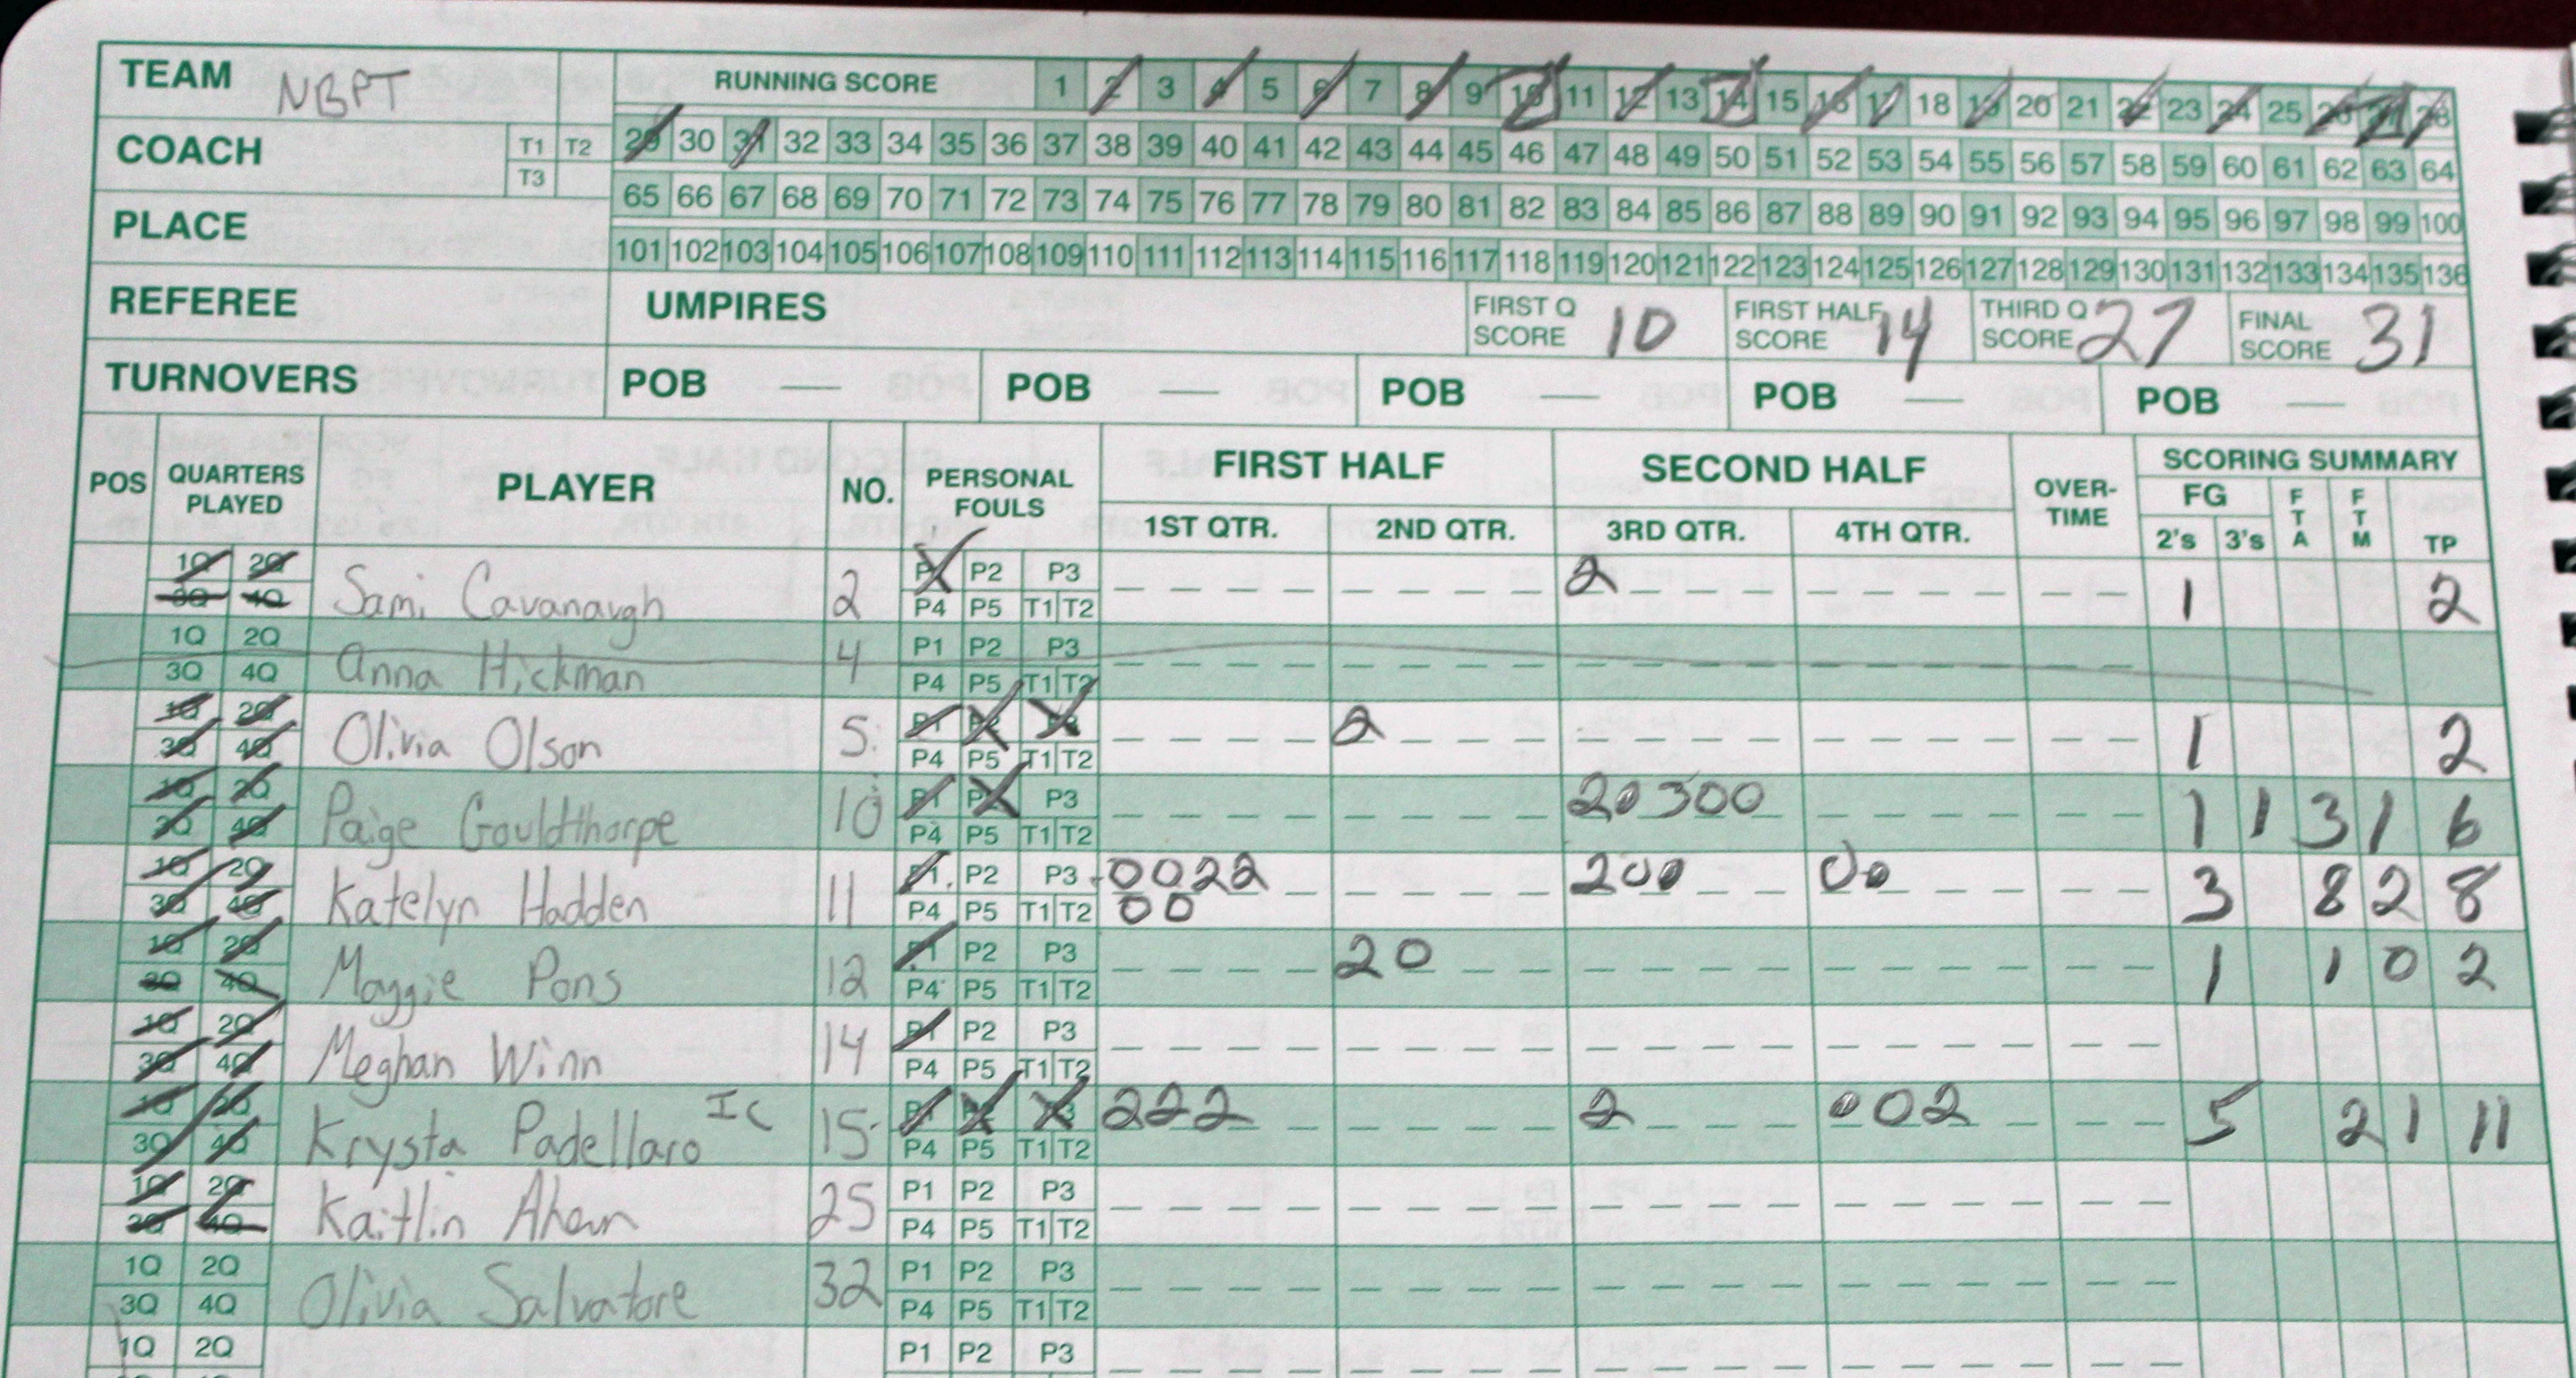 TEAM NBPT
RUNNING SCORE 1 2 3 4 5 6 7 8 9 10 11 12 13 14 15 16 17 18 19 20 21 22 23 24 25 26 27 28
29 30 31 32 33 34 35 36 37 38 39 40 41 42 43 44 45 46 47 48 49 50 51 52 53 54 55 56 57 58 59 60 61 62 63 64
COACH T1 T2
T3
65 66 67 68 69 70 71 72 73 74 75 76 77 78 79 80 81 82 83 84 85 86 87 88 89 90 91 92 93 94 95 96 97 98 99 100
PLACE
101 102 103 104 105 106 107 108 109 110 111 112 113 114 115 116 117 118 119 120 121 122 123 124 125 126 127 128 129 130 131 132 133 134 135 136
REFEREE UMPIRES FIRST Q SCORE 10 FIRST HALF SCORE 14 THIRD Q SCORE 27 FINAL SCORE 31
TURNOVERS POB — POB — POB — POB — POB —
POS QUARTERS PLAYED PLAYER NO. PERSONAL FOULS FIRST HALF SECOND HALF OVER-TIME SCORING SUMMARY
1ST QTR. 2ND QTR. 3RD QTR. 4TH QTR. FG 2's 3's FTA FTM TP
1Q 2Q Sami Cavanaugh 2 P1 P2 P3 2 1 2
3Q 4Q P4 P5 T1 T2
1Q 2Q Anna Hickman 4 P1 P2 P3
3Q 4Q P4 P5 T1 T2
1Q 2Q Olivia Olson 5 P1 P2 P3 2 1 2
3Q 4Q P4 P5 T1 T2
1Q 2Q Paige Gouldthorpe 10 P1 P2 P3 20 300 1 1 3 1 6
3Q 4Q P4 P5 T1 T2
1Q 2Q Katelyn Hadden 11 P1 P2 P3 0022 200 00 3 8 2 8
3Q 4Q P4 P5 T1 T2 00
1Q 2Q Maggie Pons 12 P1 P2 P3 20 1 1 0 2
3Q 4Q P4 P5 T1 T2
1Q 2Q Meghan Winn 14 P1 P2 P3
3Q 4Q P4 P5 T1 T2
1Q 2Q Krysta Padellaro IC 15 P1 P2 P3 222 2 002 5 2 1 11
3Q 4Q P4 P5 T1 T2
1Q 2Q Kaitlin Ahearn 25 P1 P2 P3
3Q 4Q P4 P5 T1 T2
1Q 2Q Olivia Salvatore 32 P1 P2 P3
3Q 4Q P4 P5 T1 T2
1Q 2Q P1 P2 P3